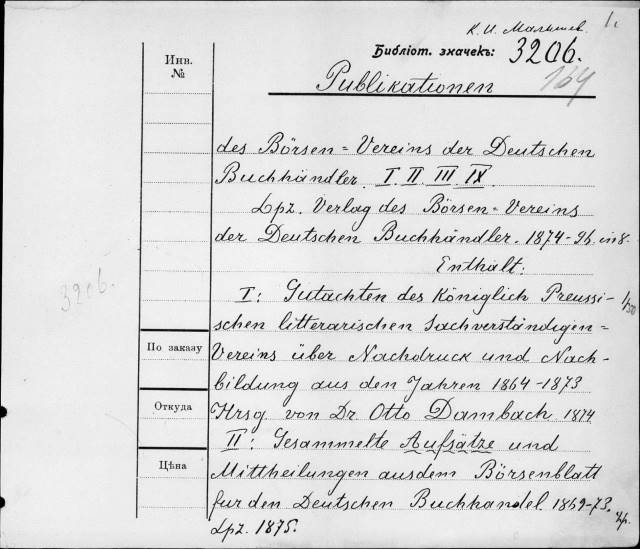 К. И. Малышев. 1.
Библіот. значекъ: 3206.
164
Publikationen
Инв.
№
des Börsen=Vereins der Deutschen
Buchhändler. I. II. III. IX.
Lpz. Verlag des Börsen=Vereins
der Deutschen Buchhändler. 1874-96. in 8.
Enthält:
3206.
I: Gutachten des Königlich Preussi-
schen litterarischen Sachverständigen=
По заказу
Vereins über Nachdruck und Nach-
bildung aus den Jahren 1864-1873
Откуда
Hrsg. von Dr. Otto Dambach. 1874
II: Gesammelte Aufsätze und
Цѣна
Mittheilungen aus dem Börsenblatt
für den Deutschen Buchhandel. 1869-73.
Lpz. 1875.